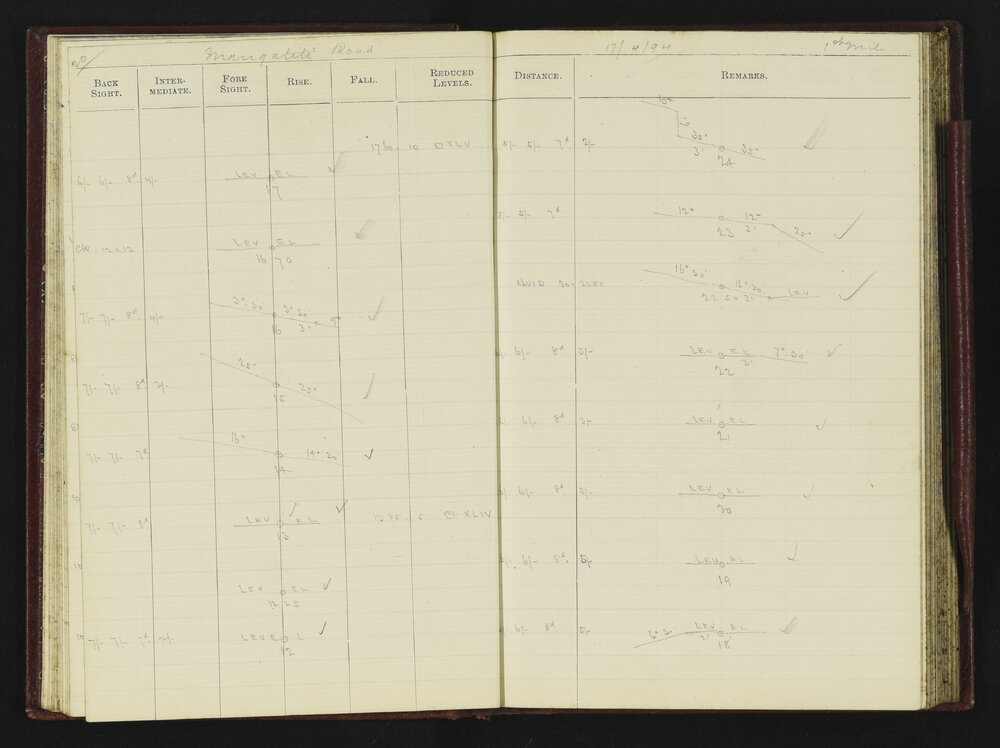 Mangatiti Road
BACK SIGHT. INTER-MEDIATE. FORE SIGHT. RISE. FALL. REDUCED LEVELS.
1760 10 □ XLV
6/- 6/- 8d 4/- LEV EL
17
12 x 12 LEV EL
16 70
7/- 7/- 8d 4/- 3° 30 3° 30
16 3'
7/- 7/- 8d 2/- 25° 25°
15
7/- 7/- 7d 16° 14° 30
14
7/- 7/- 8d LEV EL 5 □ XLIV
13
LEV EL
12 25
7/- 7/- 7d 2/- LEVE L
12
17/4/94
DISTANCE. REMARKS.
16°
6
5/- 5/- 7d 2/- 35° 35°
3'
24
5/- 5/- 7d 12° 12°
23 3' 25°
XLVI □ 20 2250 16° 30' 16° 30'
22 50 2' LEV
6/- 8d 3/- LEV EL 7° 30'
3'
22
6/- 8d 3/- LEV EL
21
6/- 8d 3/- LEV EL
20
6/- 8d 5/- LEV EL
19
6/- 8d 5/- LEV EL
2'
18